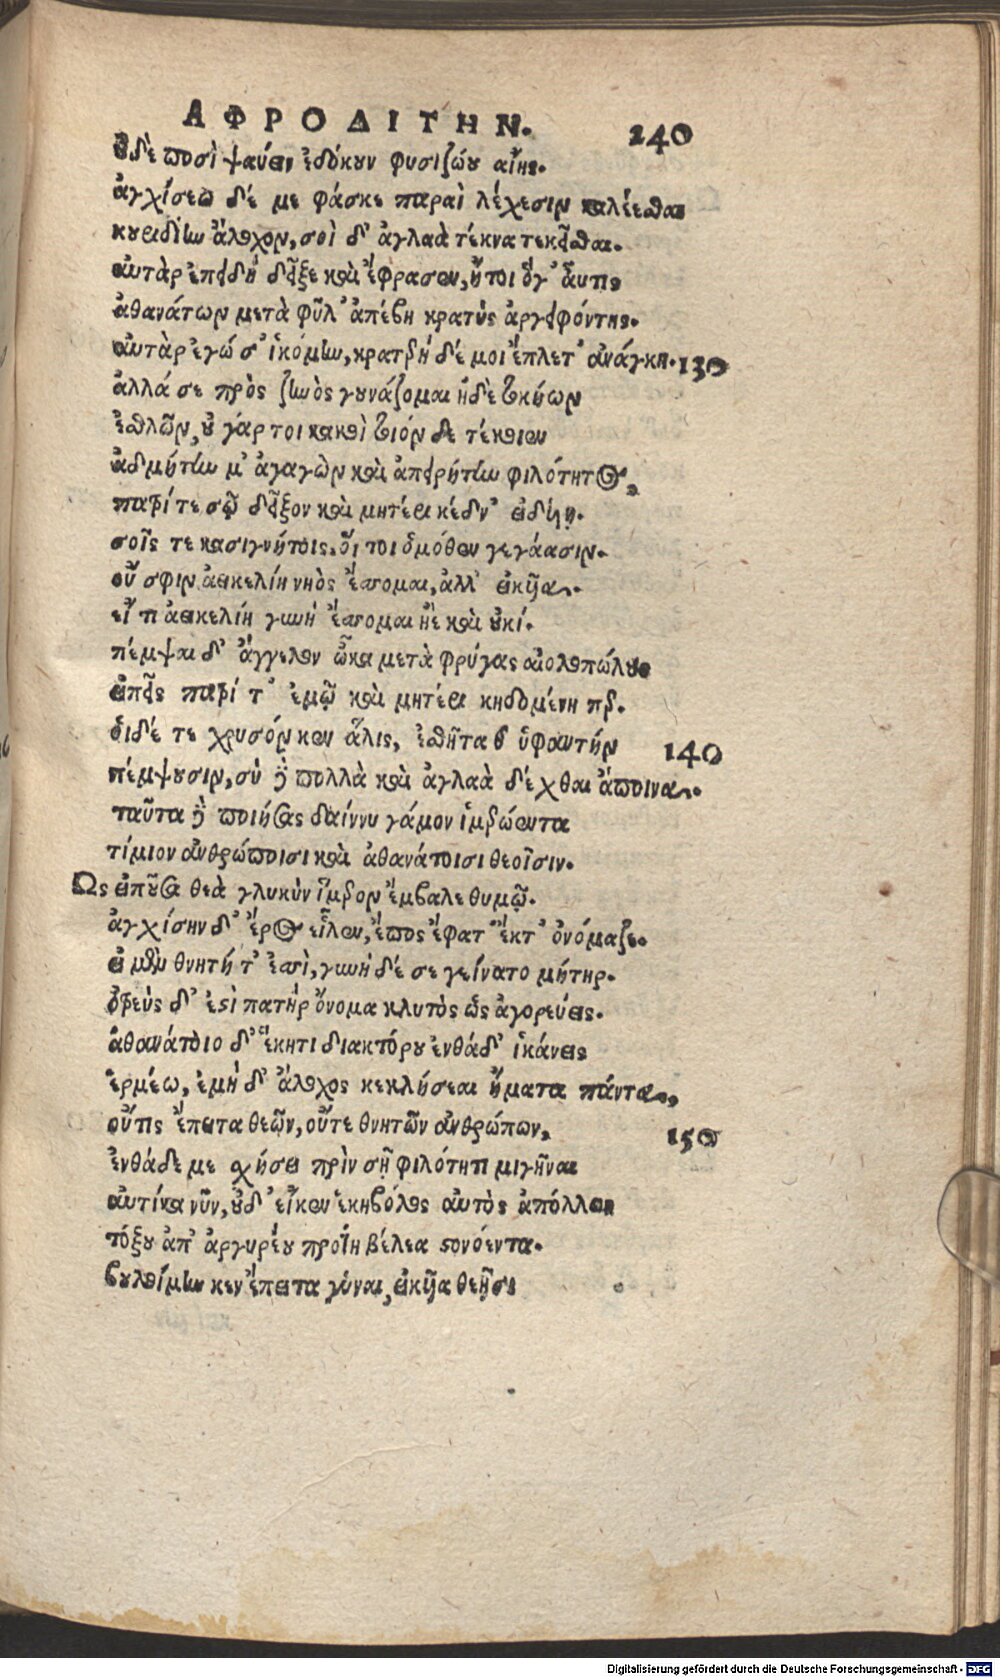 ΑΦΡΟΔΙΤΗΝ. 240
οὐδὲ ποσὶ ψαύειν ἐδόκουν φυσιζώου αἴης.
ἀγχίσεω δέ με φάσκε παραὶ λέχεσιν καλέεσθαι
κουριδίην ἄλοχον, σοὶ δ' ἀγλαὰ τέκνα τεκεῖσθαι.
αὐτὰρ ἐπειδὴ δεῖξε καὶ ἔφρασεν, ἤτοι ὅγ' αὖτις
ἀθανάτων μετὰ φῦλ' ἀπέβη κρατὺς ἀργειφόντης.
αὐτὰρ ἐγώ σ' ἱκόμην, κρατερὴ δέ μοι ἔπλετ' ἀνάγκη. 130
ἀλλά σε πρὸς ζηνὸς γουνάζομαι ἠδὲ τοκήων
ἐσθλῶν, οὐ γάρ τοι κακοὶ τοιόν δε τέκοιεν
ἀδμήτην μ' ἀγαγὼν καὶ ἀπειρήτην φιλότητος,
πατρί τε σῷ δεῖξον καὶ μητέρι κέδν' εἰδυίῃ.
σοῖς τε κασιγνήτοις. οἵ τοι ὁμόθεν γεγάασιν.
οὔ σφιν ἀεικελίη νηὸς ἔσσομαι, ἀλλ' εἰκῆα.
εἴ τι ἀεικελίη γυνὴ ἔσσομαι ἠὲ καὶ οὐκί.
πέμψαι δ' ἄγγελον ὦκα μετὰ φρύγας αἰολοπώλους
εἰπεῖς πατρί τ' ἐμῷ καὶ μητέρι κηδομένη περ.
οἱδέ τε χρυσόν κεν ἅλις, ἐσθῆτά θ' ὑφαντήν 140
πέμψουσιν, σὺ δὲ πολλὰ καὶ ἀγλαὰ δέχθαι ἄποινα.
ταῦτα δὲ ποιήσας δαίνυ γάμον ἱμερόεντα
τίμιον ἀνθρώποισι καὶ ἀθανάτοισι θεοῖσιν.
Ως εἰποῦσα θεὰ γλυκὺν ἵμερον ἔμβαλε θυμῷ.
ἀγχίσην δ' ἔρος εἷλεν, ἔπος ἔφατ' ἔκτ' ὀνόμαζε.
εἰ μὲν θνητή τ' ἐσσὶ, γυνὴ δέ σε γείνατο μήτηρ.
ὀτρεὺς δ' ἐστὶ πατὴρ ὄνομα κλυτὸς ὡς ἀγορεύεις.
ἀθανάτοιο δ' ἕκητι διακτόρου ἐνθάδ' ἱκάνεις
ἑρμέω, ἐμὴ δ' ἄλοχος κεκλήσεαι ἤματα πάντα,
οὔτις ἔπειτα θεῶν, οὔτε θνητῶν ἀνθρώπων, 150
ἐνθάδε με σχήσει πρὶν σῇ φιλότητι μιγῆναι
αὐτίκα νῦν, οὐδ' εἴκεν ἑκηβόλος αὐτὸς ἀπόλλων
τόξου ἀπ' ἀργυρέου προΐῃ βέλεα στονόεντα.
βουλοίμην κεν ἔπειτα γύναι, εἰκῆα θεῇσι
Digitalisierung gefördert durch die Deutsche Forschungsgemeinschaft - DFG